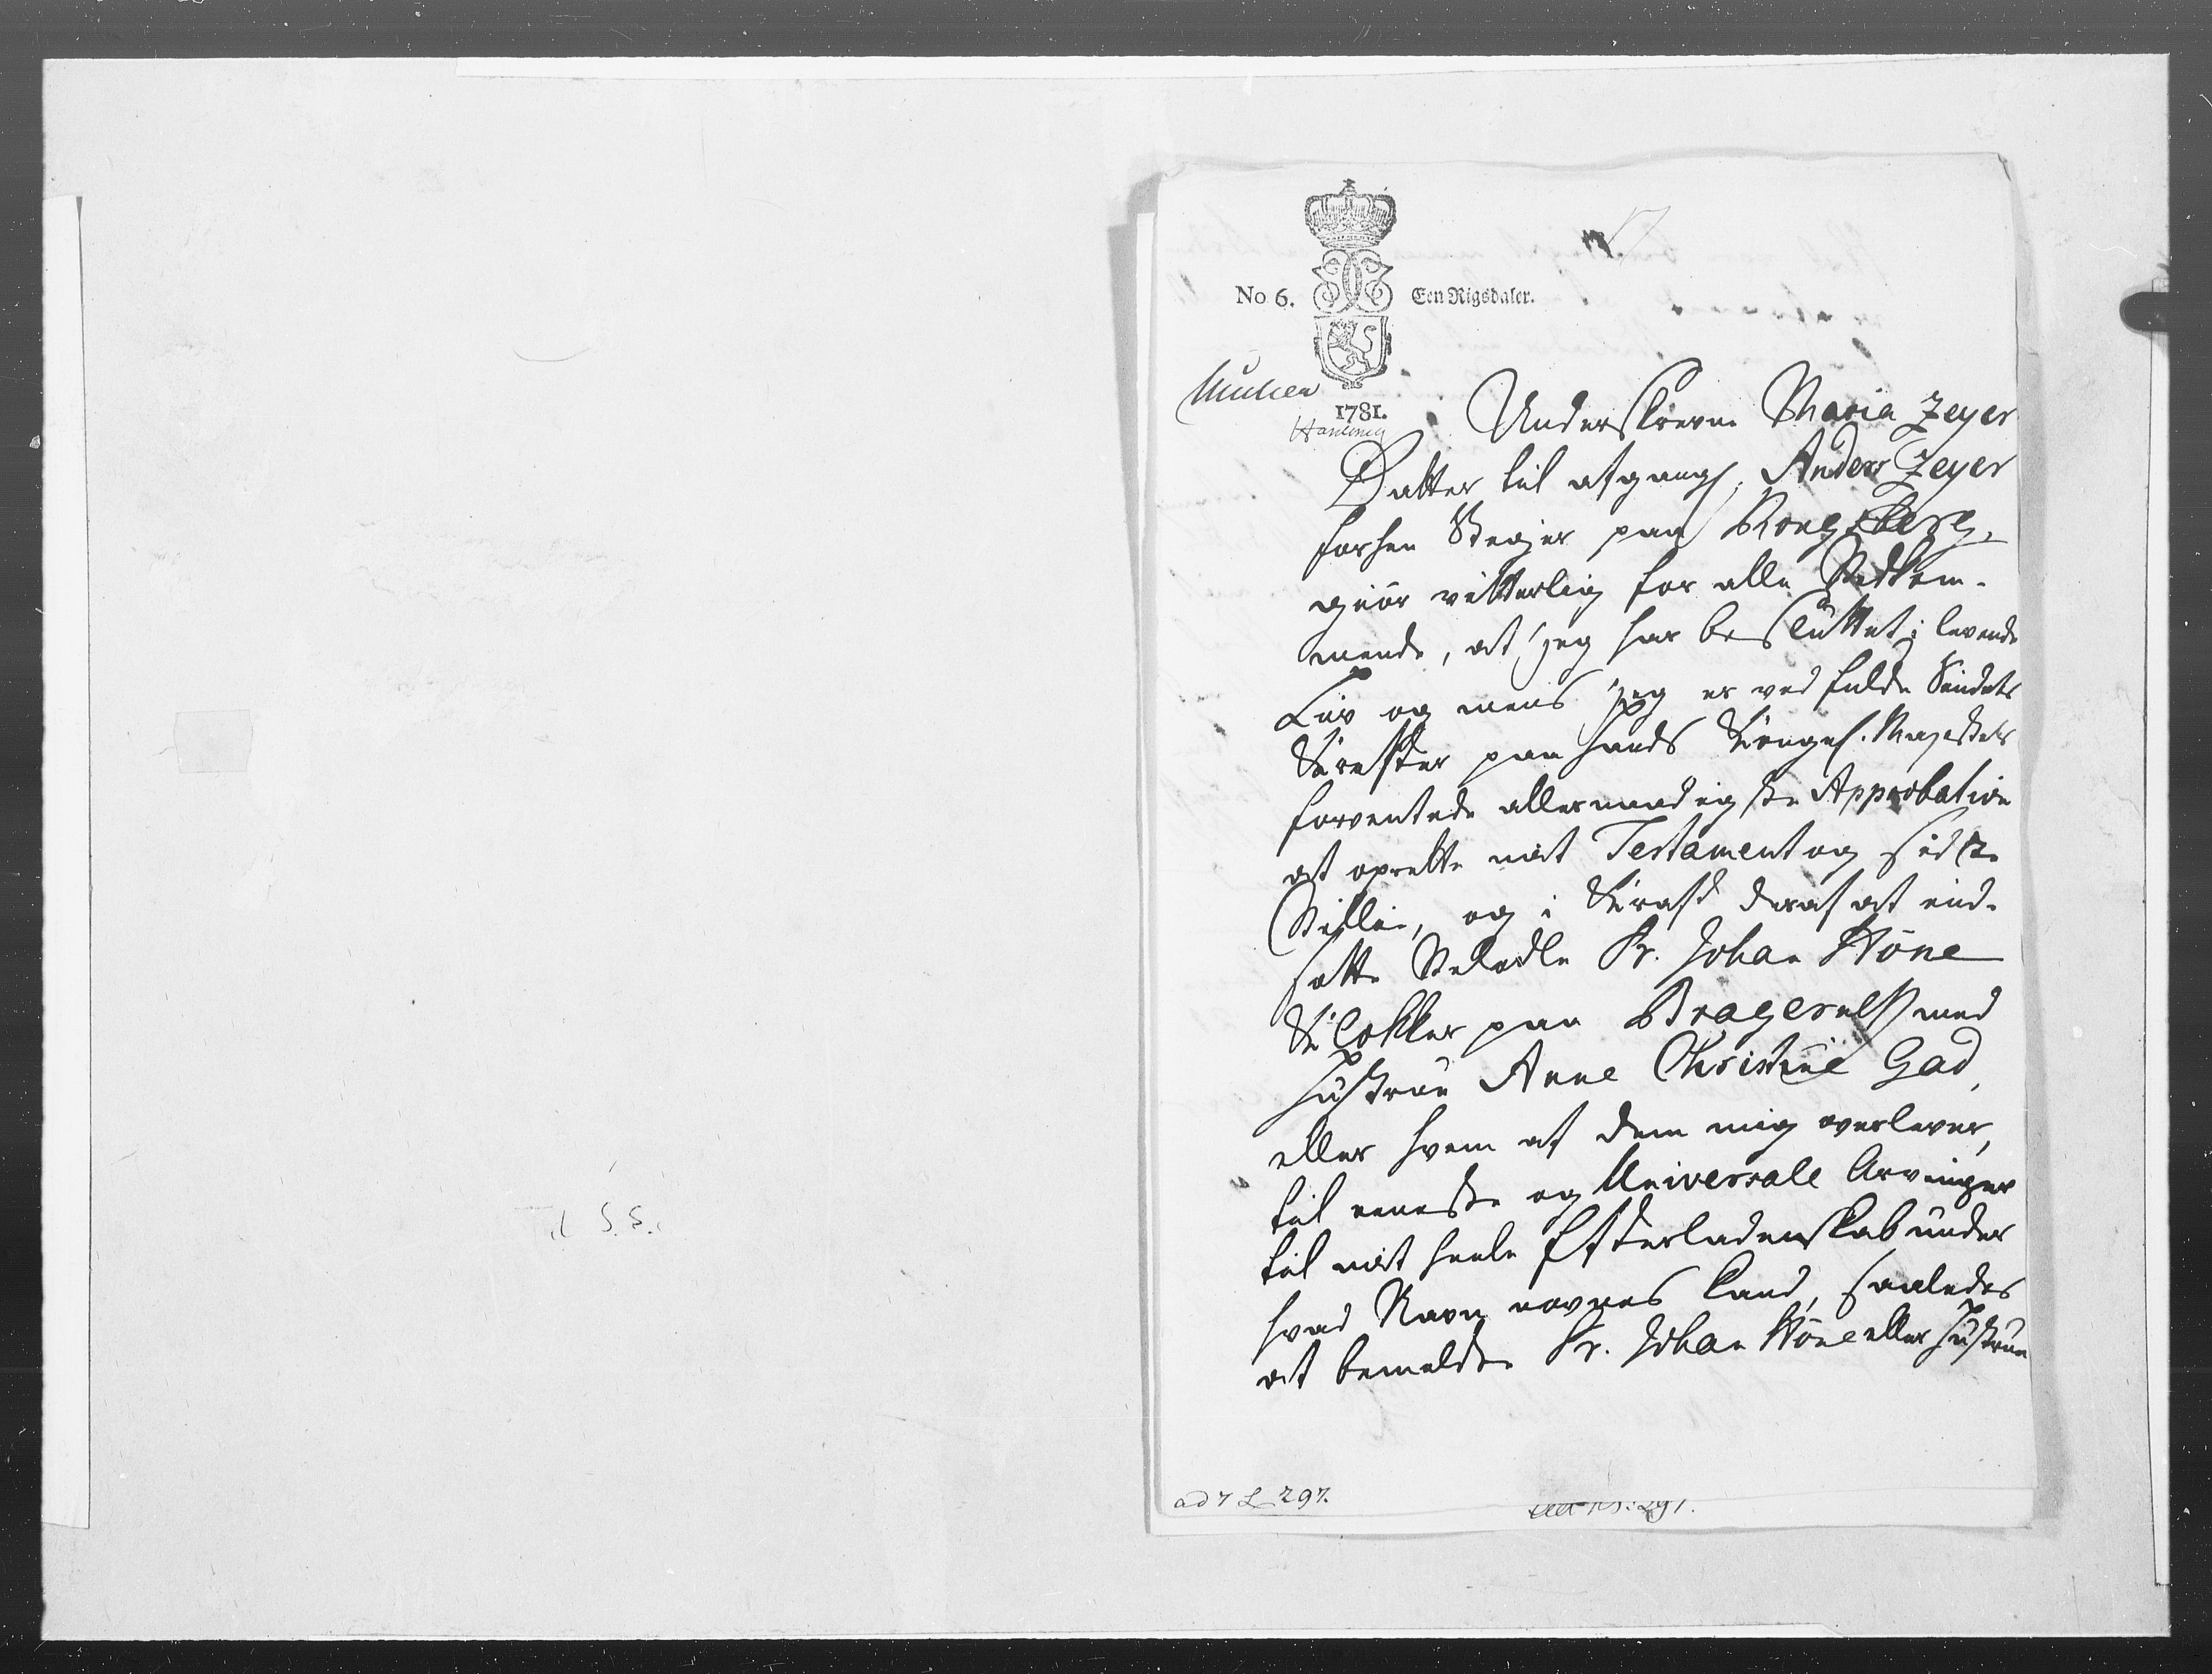 No 6. Een Rigsdaler.
1781.
Underskrevne Maria Zeyer
Datter til afgangl. Anders Zeyer
forhen Steiger paa Kongsberg,
giør vitterlig for alle Vedkom-
mende, at jeg har besluttet i levende
Liv og mens jeg er ved fulde Sindets
Kræfter paa Hands Kongel. Majestets
forventede allernaadigste Approbation
at oprette mit Testament og sidste
Villie, og i Kraft deraf at ind-
sætte Velædle Hr. Johan Höne
Klokker paa Bragernes med
Hustrue Anne Christine Gad,
eller hvem af dem mig overlever,
til eeneste og Universale Arvinger
til mit heele Efterladenskab under
hvad Navn nævnes kand, saaledes
at bemeldte Hr. Johan Höne eller Hustrue
ad 7 L 297.
Til S.S.